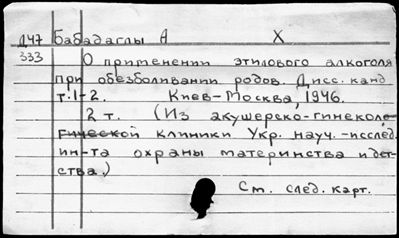 Д47 Бабадаглы А X
333 О применении этилового алкоголя
при обезболивании родов. Дисс. канд
т.1-2. Киев-Москва, 1946.
2 т. (Из акушерско-гинеколо-
гической клиники Укр. науч.-исслед.
ин-та охраны материнства и дет-
ства.)
См. след. карт.